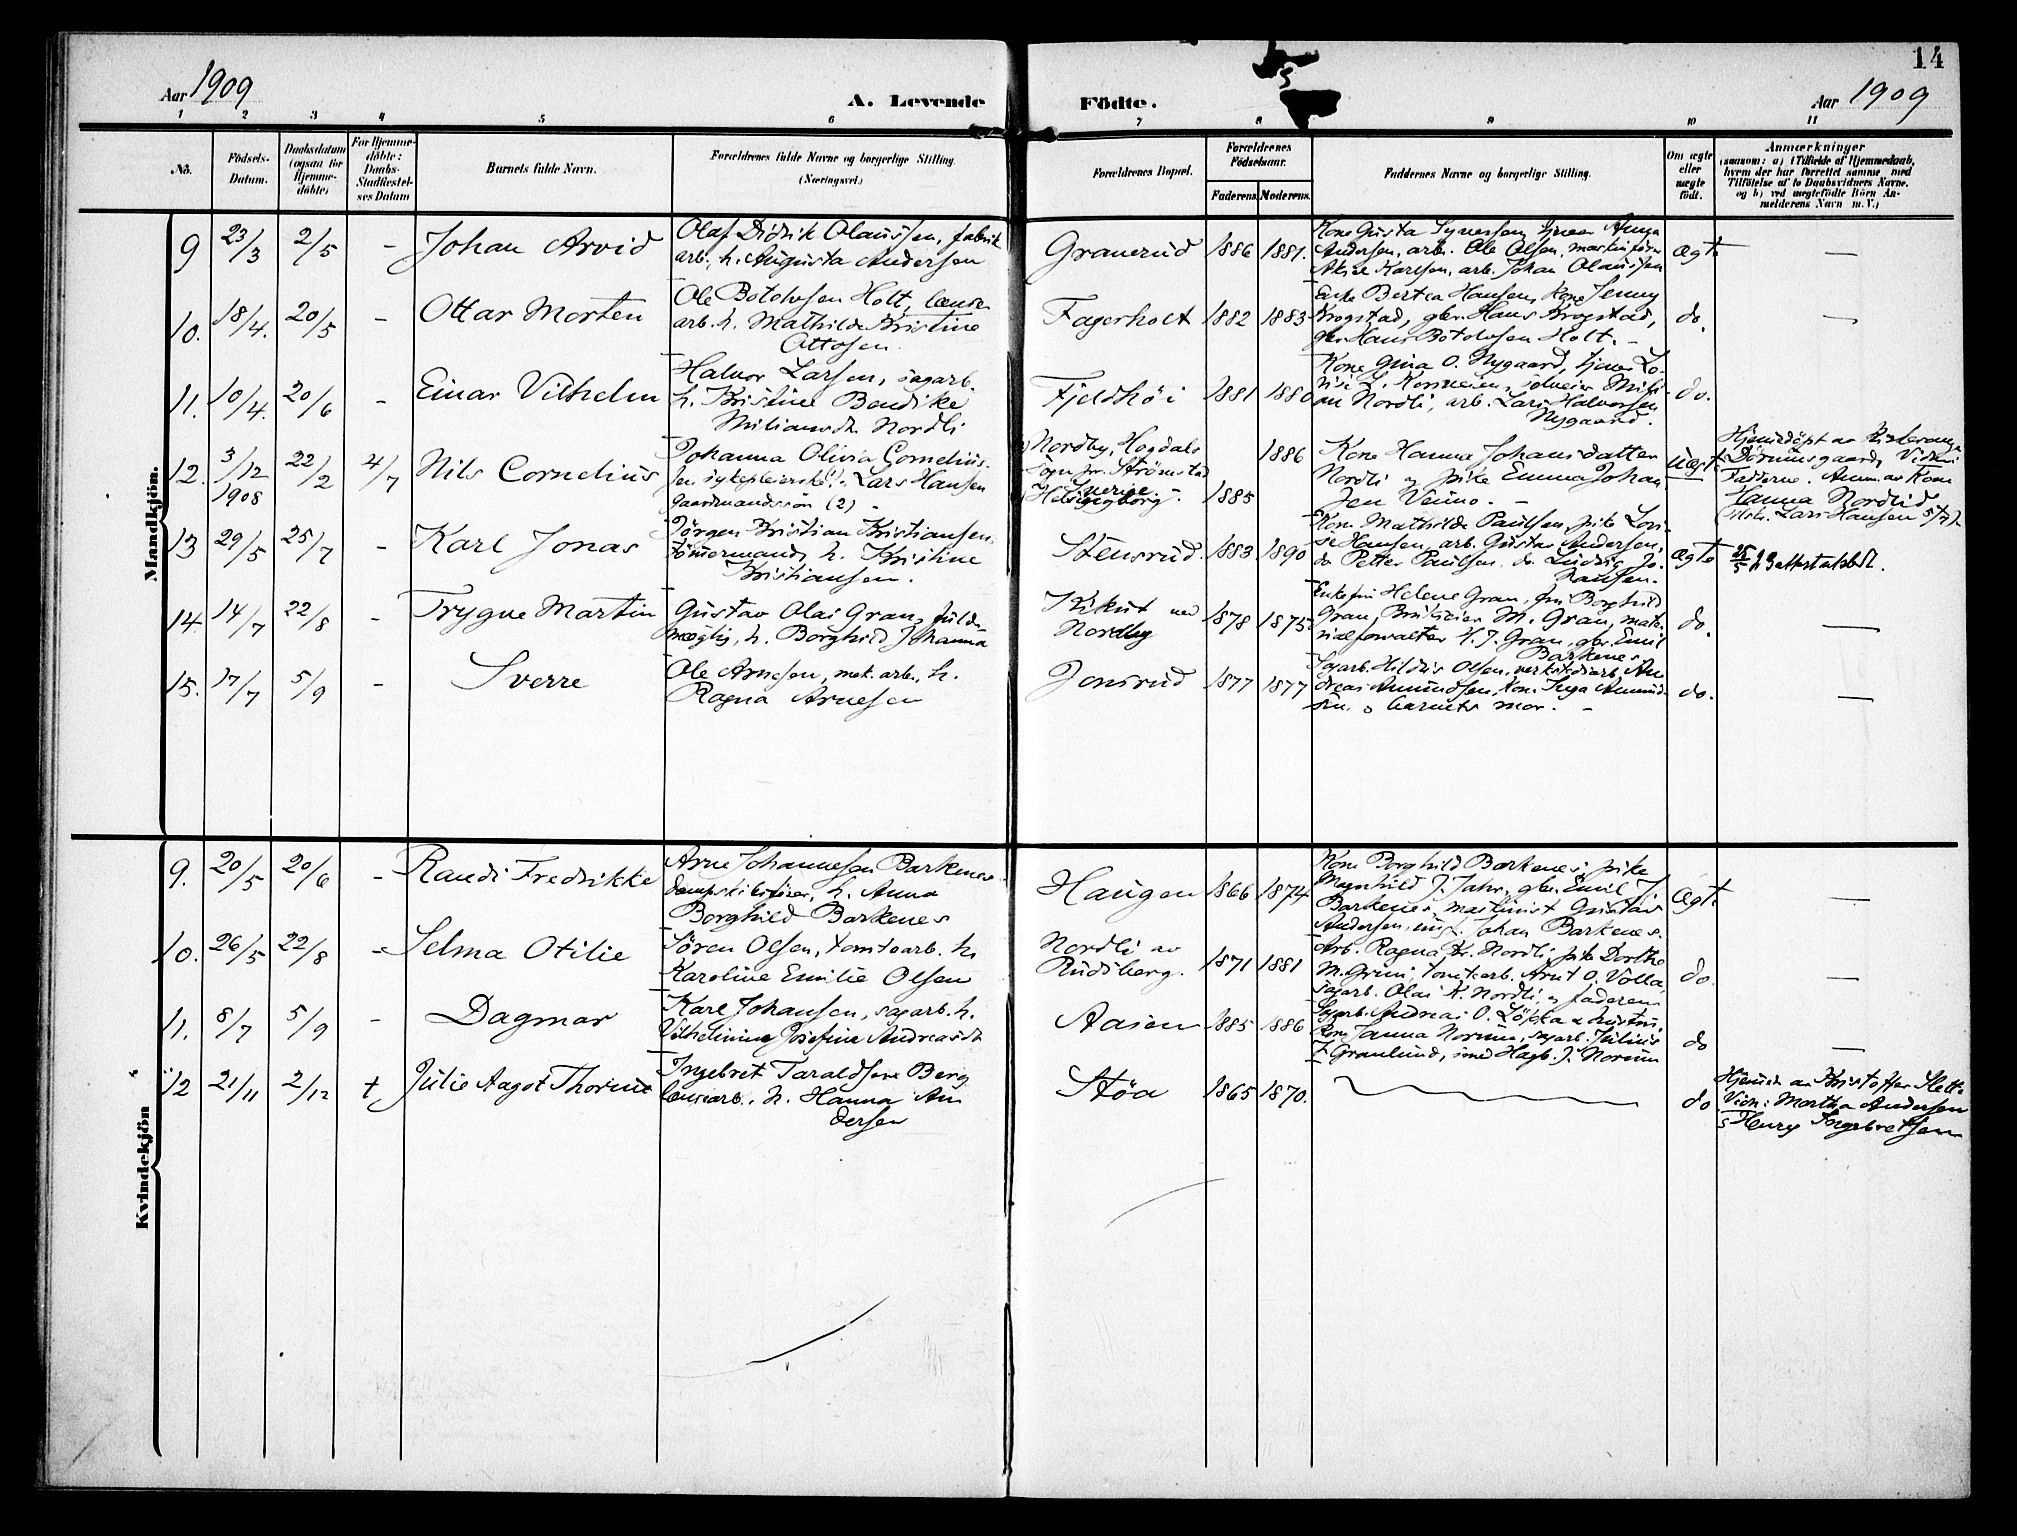 14
Aar 1909
A. Levende Födte.
Aar 1909
1 2 3 4 5 6 7 8 9 10 11
No.
Födsels-Datum.
Daabsdatum (ogsaa for Hjemme-döbte)
For Hjemme-döbte: Daabs-Stadfæstel-ses Datum
Barnets fulde Navn.
Forældrenes fulde Navne og borgerlige Stilling. (Næringsvei.)
Forældrenes Bopæl.
Forældrenes Födselsaar.
Faderens. Moderens.
Faddernes Navne og borgerlige Stilling.
Om ægte eller uægte födt.
Anmærkninger
(saasom: a) i Tilfælde af Hjemmedaab,
hvem der har forrettet samme, med
Tilföielse af to Daabsvidners Navne,
og b) ved uægtefödte Börn An-
melderens Navn m. V.)
Mandkjön.
9 23/3 2/5 - Johan Arvid
Olaf Didrik Olaussen, fabrik
arb., h. Augusta Andersen
Granerud 1886 1881.
Andersen, arb. Ole Olsen, maskinförer
Karlsen, arb. Johan Olaussen
ægte —
10. 18/4. 20/5 - Ottar Morten
Ole Botolvsen Holt, lænse
arb. h. Mathilde Kristine
Ottosen.
Fagerholt 1882 1883
Enke Bertea Hansen, Kone Jenny
Krogstad, gbr. Hans Krogstad,
gbr. Hans Botolvsen Holt. -
do. —
11. 10/4. 20/6 - Einar Vilhelm
Halvor Larsen, sagarb.
h. Kristine Bendike
Nordli
Fjeldhöi 1881 1880
Kone Gina O. Nygaard,
Nordli, arb. Lars Halvorsen
Nygaard.
do.
12. 3/12 1908 22/2 4/7 Nils Cornelius
Johanna Olivia Cornelius-
sen sykepleierske(1). Lars Hansen
gaardmandssön (2) -
Nordby, Hogdals
Sogn pr. Strömstad
Sverige -
Helsingborg -
1885 1886
Kone Hanna Johansdatter
Nordli og pike Emma Johan
sen -
uægte
Faddere. Anm. av Kone
Hanna Nordlid
Lars Hansen 5/7).
13 29/5 25/7 - Karl Jonas
Jörgen Kristian Kristiansen,
tömmermand, h. Kristine
Kristiansen.
Stensrud. 1883. 1890
Kone Mathilde Paulsen, pike Lovi-
se Hansen, arb. Gustav Andersen,
do Petter Paulsen. do. Ludvig Jo-
hansen.
ægte
14. 14/7 22/8 - Trygve Martin
Gustav Olai Gran, fuld-
mægtig, h. Borghild Johanna
Kikut ved
Nordby
1878 1875
Enkefru Helene Gran, fru Borghild
Gran, M. Gran, mate-
rialforvalter H. J. Gran, gbr. Emil
Barkenes
do. —
15. 17/7 5/9 - Sverre
Ole Arnesen, mek. arb., h.
Ragna Arnesen
Jonsrud 1877 1877
Sagarb. Hildus Olsen, verkstedarb. An
dreas Amundsen, kone Inga Amund
sen. o barnets mor. -
do. —
Kvindekjön
9. 20/5 20/6 - Randi Fredrikke
Arne Johannesen Barkenes
dampskibsförer, h. Anna
Borghild Barkenes
Haugen 1866 1874
Kone Borghild Barkenes, pike
Magnhild J. Jahr, gbr. Emil J.
Barkenes, maskinist Gustav
Andersen, ung. Johan Barkenes.
ægte —
10. 26/5 22/8 - Selma Otilie
Sören Olsen, tomtearb. h.
Karoline Emilie Olsen
Nordli av
Rudsberg.
1871 1881
Arb. Ragna Kr. Nordli, pike Dorthe
M. Gruni, tomtearb. Arnt O. Volla,
sagarb. Olai K. Nordli, og faderen
do. —
11. 8/7 5/9 - Dagmar
Karl Johansen, sagarb. h.
Vilhelmine Josefine Andreasdt
Aasen 1885 1886
Sagarb. Andreas O. Lökka
Kone Janna Norum, sagarb. Julius
Granlund, smed Hagb. J. Norum
do —
12 21/11 2/12 + Julie Aagot Thorine
Ingebret Taraldsen Berg
lænsearb., h. Hanna An
dersen
Stöa 1865 1870.
do
Hjemmed. av Kristoffer Slett.
Vidn: Martha Andersen
Henry Ingebretsen